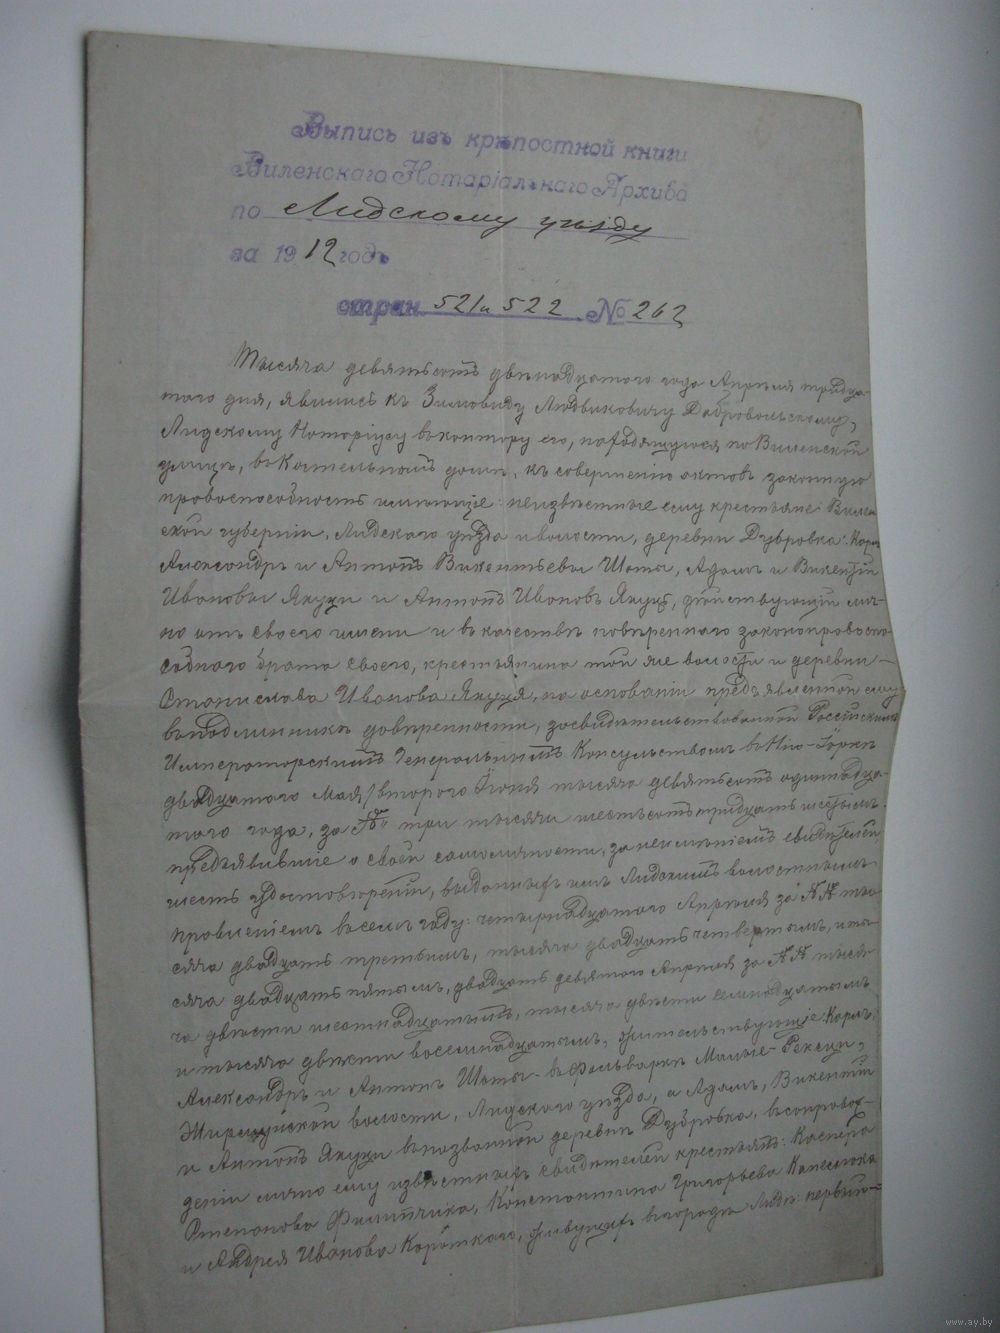 Выпись изъ крѣпостной книги
Виленскаго Нотаріальнаго Архива
по Лидскому уѣзду
за 1912 годъ
стран. 521 и 522 № 262
Тысяча девятьсотъ двѣнадцатого года Апрѣля тридца-
того дня, явились къ Зимовиду Людвиковичу Добровольскому,
Лидскому Нотаріусу въ контору его, находящуюся по Виленской
улицѣ, въ домѣ, къ совершенію актовъ законную
правоспособность имѣющіе: неизвѣстные ему крестьяне Вилен-
ской губерніи, Лидскаго уѣзда и волости, деревни Дубровка: Карлъ
Александръ и Антонъ Викентьевы Шоты, Адамъ и Викентій
Ивановы Якуци и Антонъ Ивановъ Якуць, дѣйствующій лич-
но отъ своего имени и въ качествѣ повѣреннаго законоправоспо-
собнаго брата своего, крестьянина той же волости и деревни-
Станислава Иванова Якуця, на основаніи предъявленной ему
въ подлинникѣ довѣренности, засвидѣтельствованной Россійскимъ
Императорскимъ Генеральнымъ Консульствомъ въ Нію-Іоркѣ
двадцатого Мая/второго Іюня тысяча девятьсотъ одиннадца-
того года, за № три тысячи шестьсотъ тридцать шестымъ.
предъявившіе о своей самоличности, за неимѣніемъ свидѣтелей,
шесть удостовѣреній, выданныхъ имъ Лидскимъ волостнымъ
правленіемъ въ семъ году: четырнадцатого Апрѣля за №№ ты-
сяча двадцать третьимъ, тысяча двадцать четвертымъ, и ты-
сяча двадцать пятымъ, двадцать девятого Апрѣля за №№ тыся-
ча двѣсти шестнадцатымъ, тысяча двѣсти семнадцатымъ
и тысяча двѣсти восемнадцатымъ, жительствующіе: Карлъ,
Александръ и Антонъ Шоты- въ фольваркѣ Малые-
Жирмунской волости, Лидскаго уѣзда, а Адамъ, Викентій
и Антонъ Якуци въ названной деревнѣ Дубровка, въ сопровож-
деніи лично ему извѣстныхъ свидѣтелей крестьянъ: Каспера
Степанова Константина Григорьева
и Андрея Иванова Короткаго, живущихъ въ городѣ Лидѣ: первый-
www.ay.by